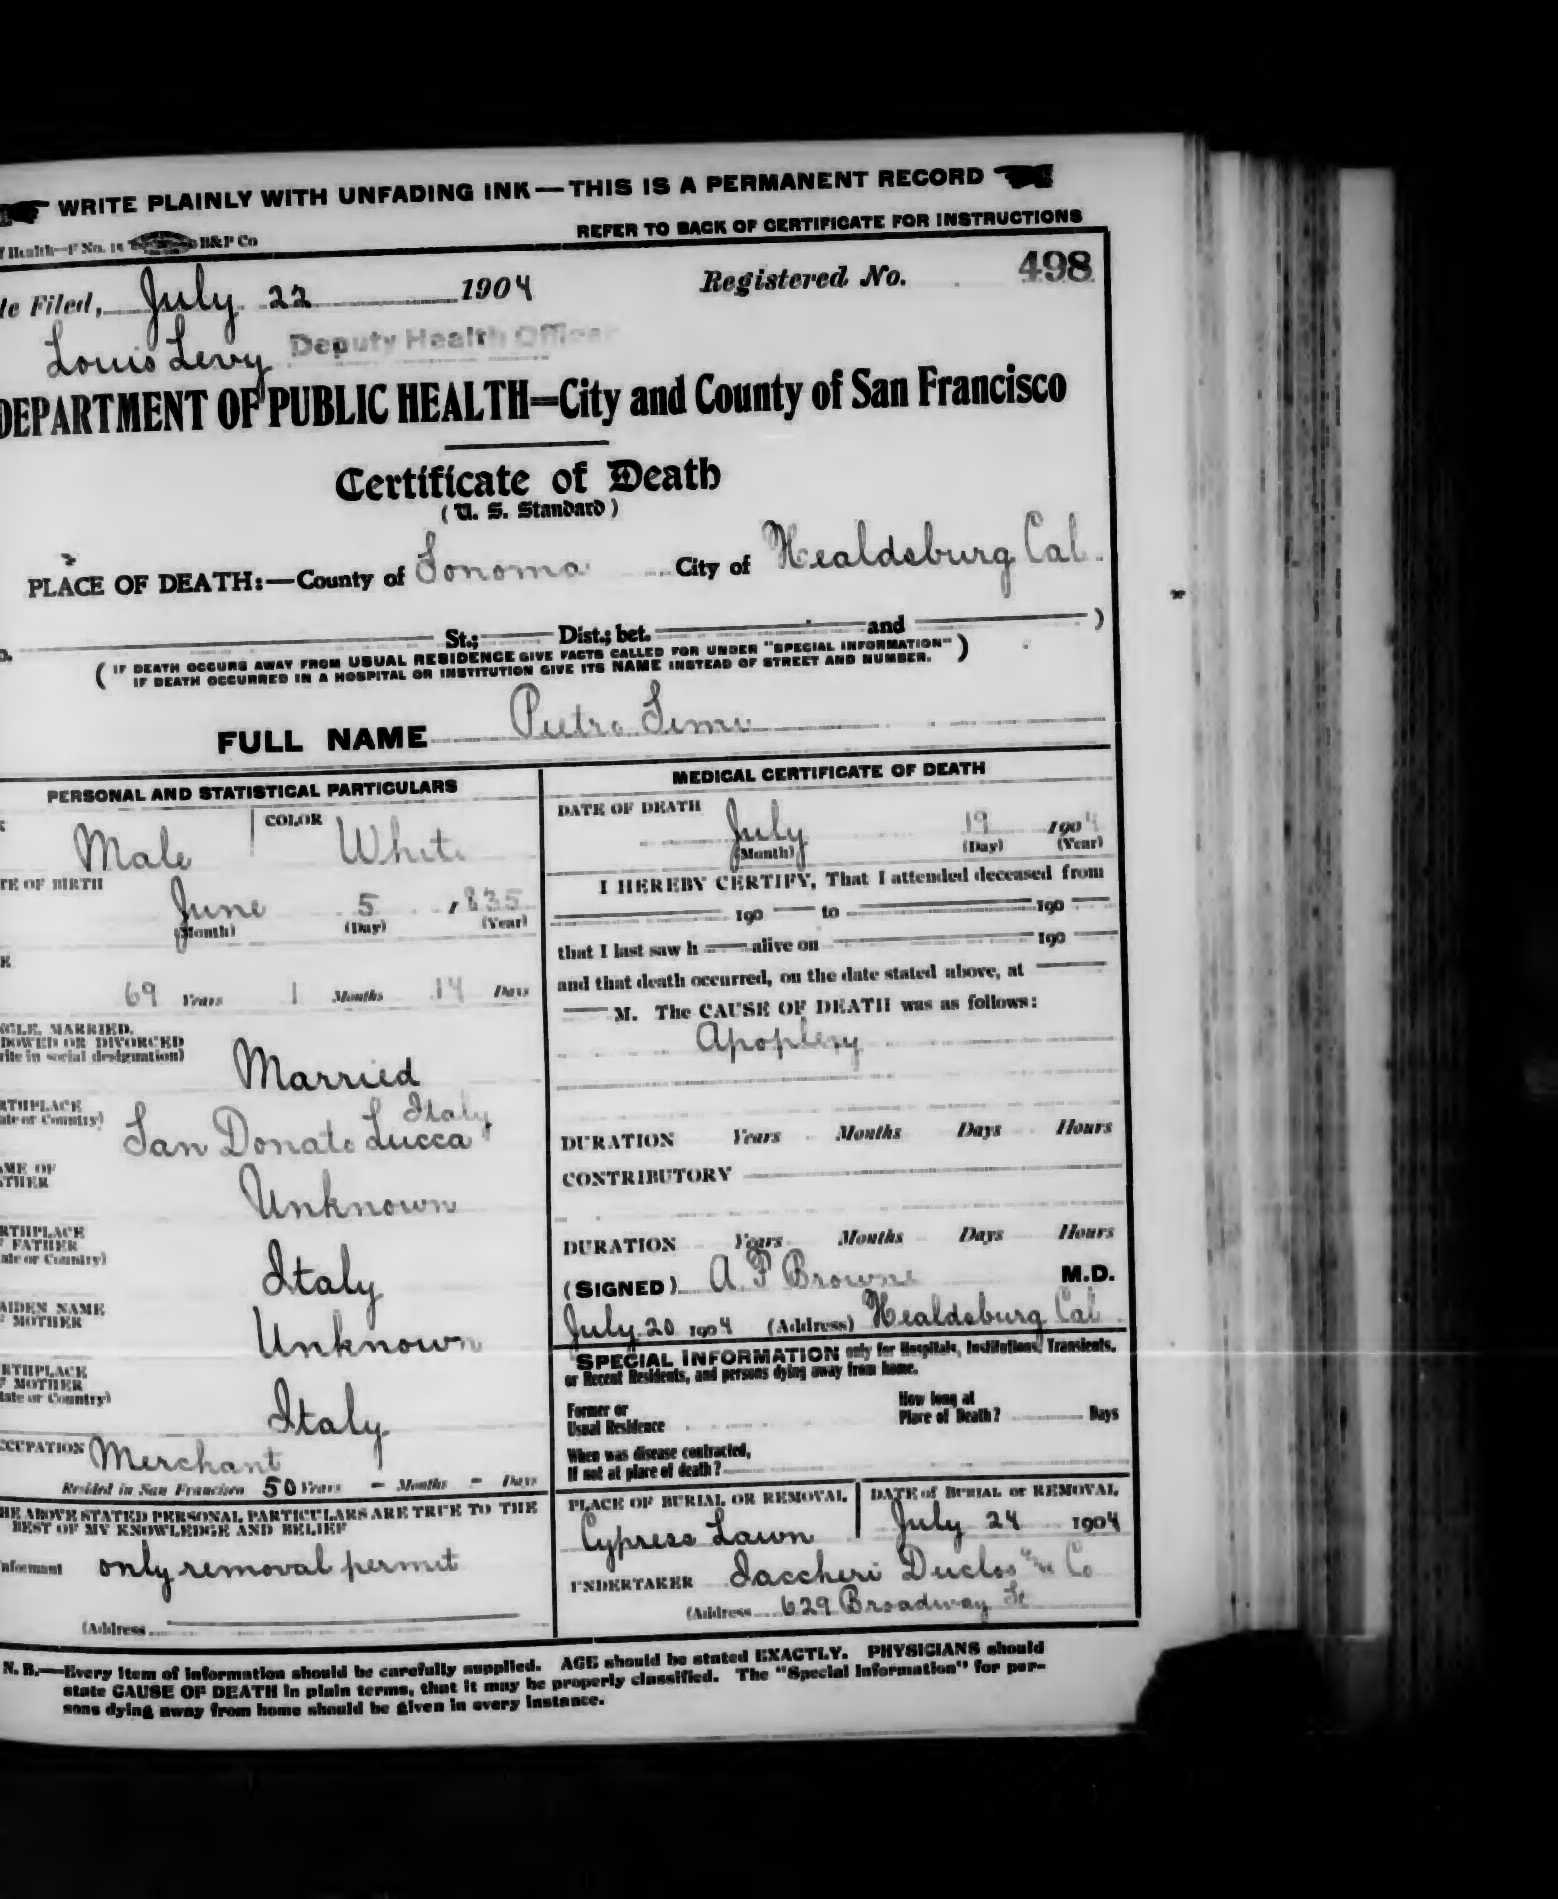 WRITE PLAINLY WITH UNFADING INK — THIS IS A PERMANENT RECORD
Health—F No. 18 B&P Co
REFER TO BACK OF CERTIFICATE FOR INSTRUCTIONS
te Filed, July 22 1904 Registered No. 498
Louis Levy Deputy Health Officer
DEPARTMENT OF PUBLIC HEALTH=City and County of San Francisco
Certificate of Death
(U. S. Standard)
PLACE OF DEATH:—County of Sonoma City of Healdsburg Cal.
St.; Dist.; bet. and )
( IF DEATH OCCURS AWAY FROM USUAL RESIDENCE GIVE FACTS CALLED FOR UNDER "SPECIAL INFORMATION" )
IF DEATH OCCURRED IN A HOSPITAL OR INSTITUTION GIVE ITS NAME INSTEAD OF STREET AND NUMBER.
FULL NAME Pietro Simi
PERSONAL AND STATISTICAL PARTICULARS
Male COLOR White
TE OF BIRTH
June 5 , 1835
(Month) (Day) (Year)
69 Years 1 Months 14 Days
NGLE, MARRIED,
DOWED OR DIVORCED
rite in social designation)
Married
RTHPLACE
ate or Country) San Donato Lucca Italy
AME OF
ATHER
Unknown
RTHPLACE
F FATHER
ate or Country)
Italy
AIDEN NAME
F MOTHER
Unknown
RTHPLACE
F MOTHER
tate or Country)
Italy
CCUPATION Merchant
Resided in San Francisco 50 Years - Months - Days
HE ABOVE STATED PERSONAL PARTICULARS ARE TRUE TO THE
BEST OF MY KNOWLEDGE AND BELIEF
nformant only removal permit
(Address
MEDICAL CERTIFICATE OF DEATH
DATE OF DEATH
July 19 1904
(Month) (Day) (Year)
I HEREBY CERTIFY, That I attended deceased from
190 to 190
that I last saw h alive on 190
and that death occurred, on the date stated above, at
M. The CAUSE OF DEATH was as follows:
Apoplexy
DURATION Years Months Days Hours
CONTRIBUTORY
DURATION Years Months Days Hours
(SIGNED) A. P. Browne M.D.
July 20 1904 (Address) Healdsburg Cal
SPECIAL INFORMATION only for Hospitals, Institutions, Transients,
or Recent Residents, and persons dying away from home.
Former or
Usual Residence
How long at
Place of Death? Days
When was disease contracted,
If not at place of death?
PLACE OF BURIAL OR REMOVAL
Cypress Lawn
DATE of BURIAL or REMOVAL
July 24 1904
UNDERTAKER Iaccheri Duclos Co
(Address 629 Broadway St
N. B.—Every item of information should be carefully supplied. AGE should be stated EXACTLY. PHYSICIANS should
state CAUSE OF DEATH in plain terms, that it may be properly classified. The "Special Information" for per-
sons dying away from home should be given in every instance.